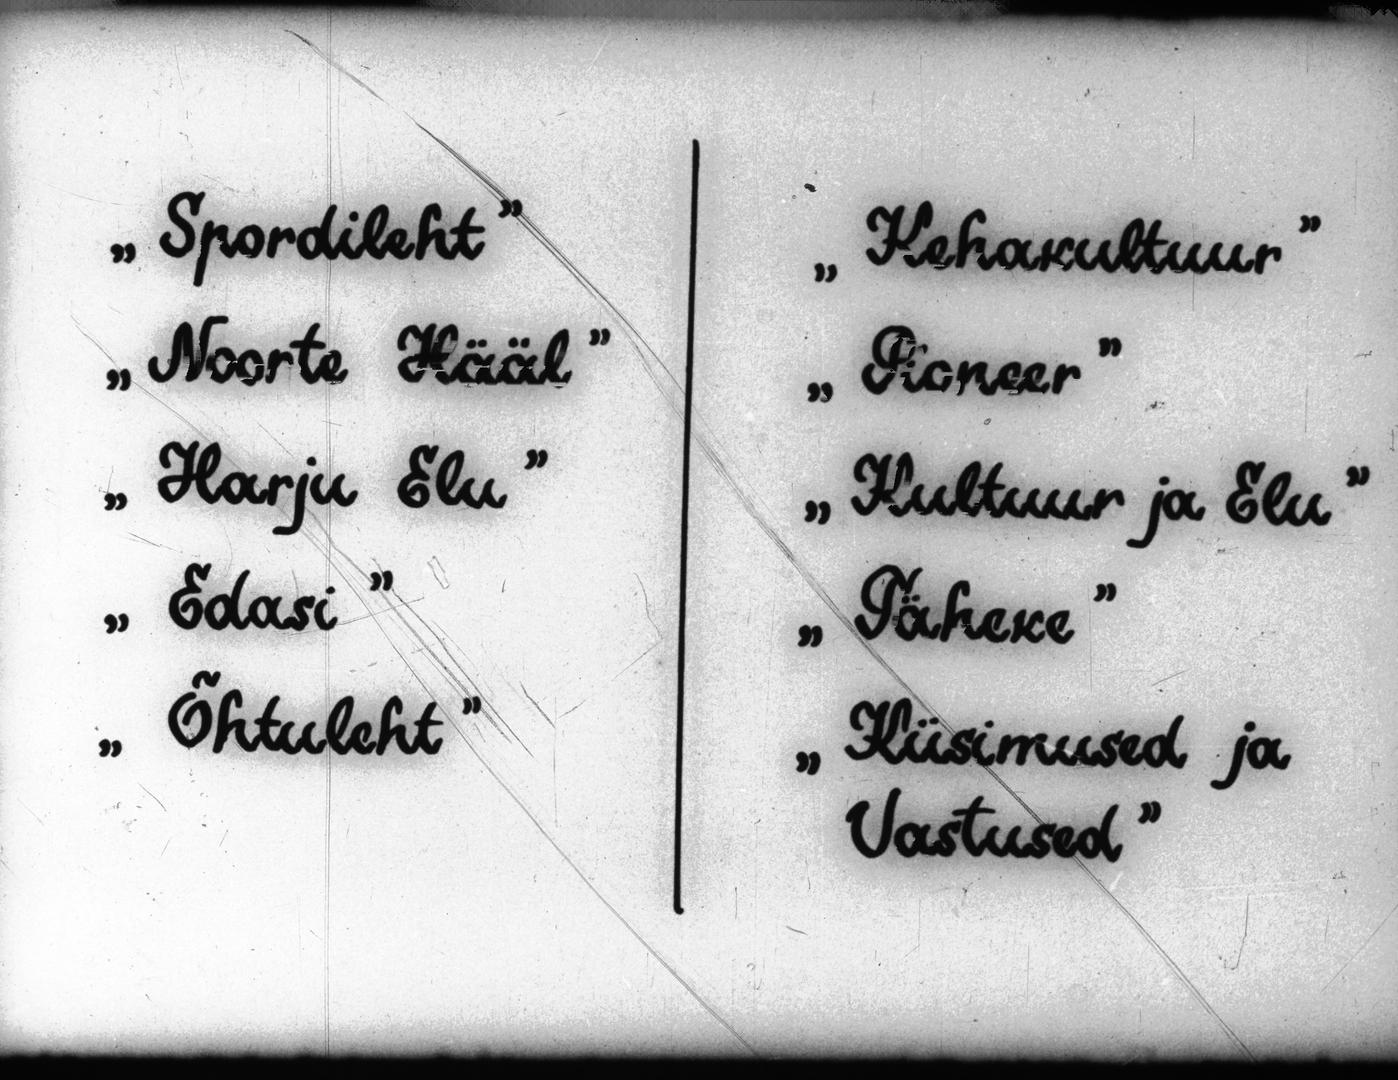 „Spordileht”
„Noorte Hääl”
„Harju Elu”
„Edasi”
„Õhtuleht”
„Kehakultuur”
„Pioneer”
„Kultuur ja Elu”
„Täheke”
„Küsimused ja
Vastused”